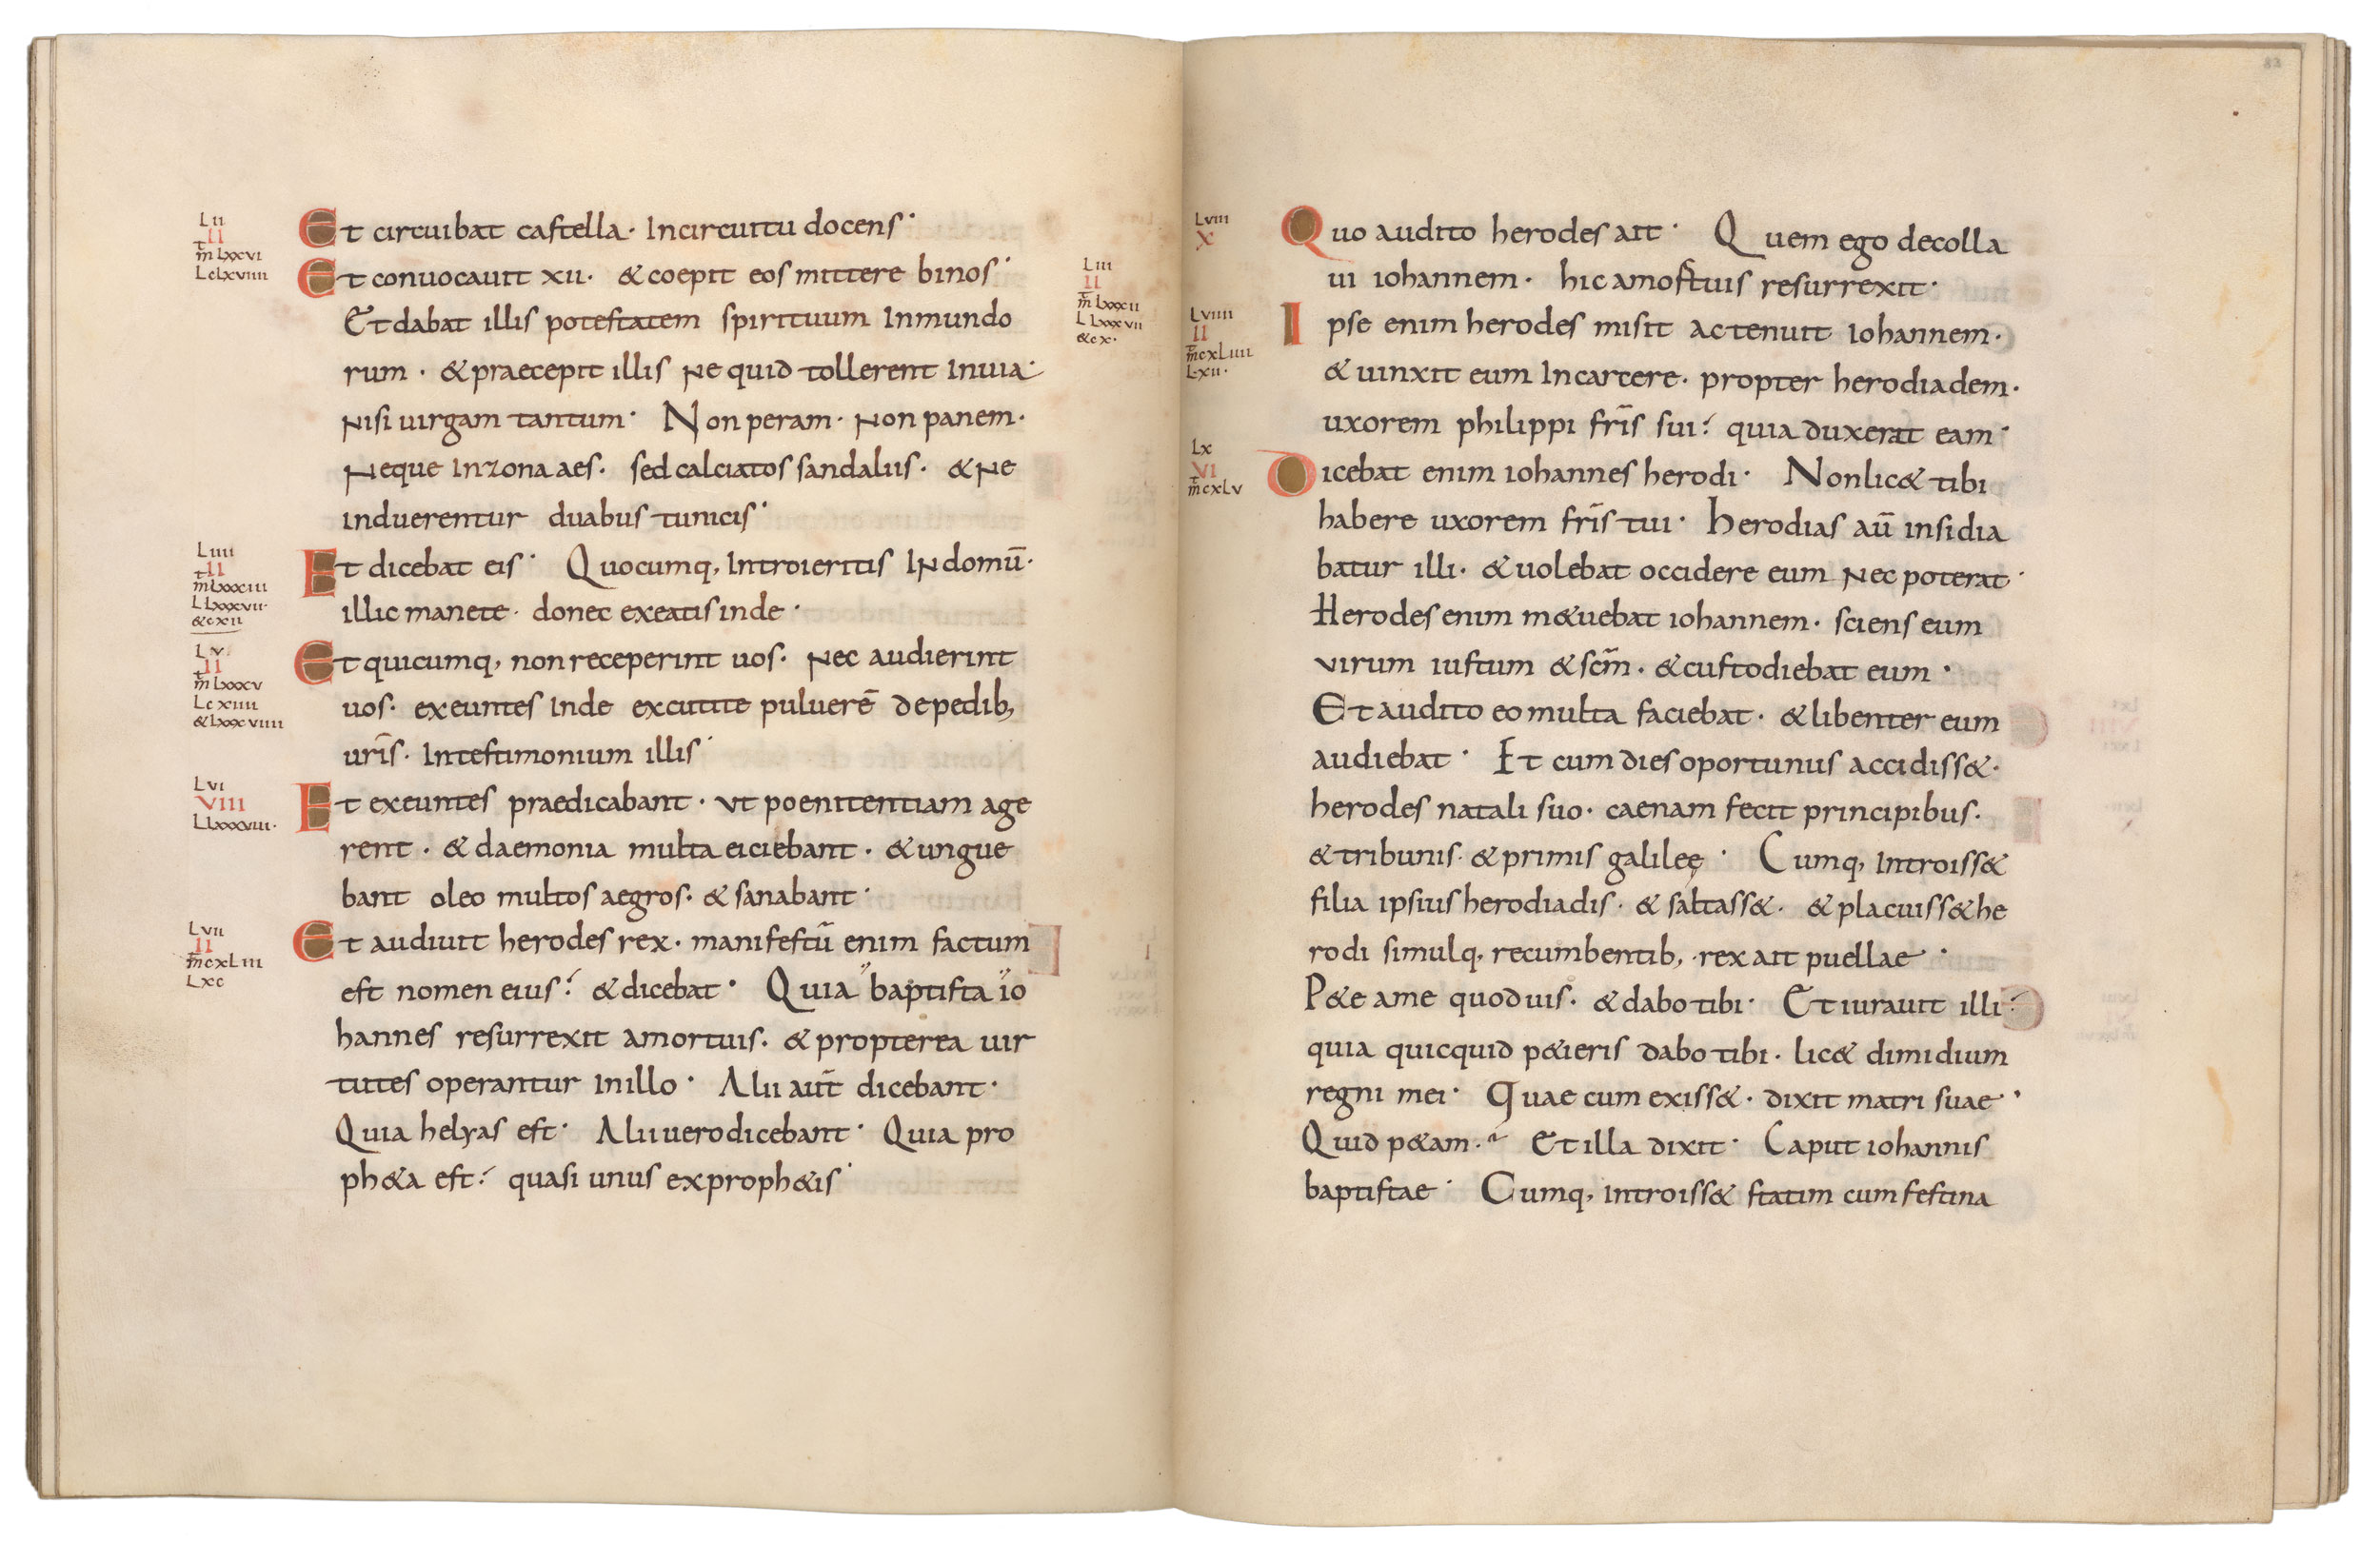 Lii
II
m̅ Lxxvi
Lclxviiii
Et circuibat castella · Incircuitu docens ·
Et conuocauit xii · & coepit eos mittere binos ·
Et dabat illis potestatem spirituum Inmundo
rum · & praecepit illis Ne quid tollerent Inuia ·
Nisi uirgam tantum · Non peram · Non panem ·
Neque Inzona aes · sed calciatos sandaliis · & Ne
induerentur duabus tunicis ·
Liii
II
m̅ Lxxxii
L Lxxxvii
& cx ·
Liiii
II
m̅ Lxxxiii
L Lxxxvii ·
& cxii
Et dicebat eis · Quocumq, Introieritis IN domū ·
illic manete · donec exeatis inde ·
Lv
II
m̅ Lxxxv
Lcxiiii
& Lxxxviiii
Et quicumq, non receperint uos · Nec audierint
uos · exeuntes Inde excutite puluerē de pedib,
uris̅ · Intestimonium illis ·
Lvi
VIII
LLxxxviii ·
Et exeuntes praedicabant · ut poenitentiam age
rent · & daemonia multa eiciebant · & ungue
bant oleo multos aegros · & sanabant ·
Lvii
II
m̅cxLiii
Lxc
Et audiuit herodes rex · manifestū enim factum
est nomen eius · & dicebat · Quia baptista io
hannes resurrexit amortuis · & propterea uir
tutes operantur Inillo · Alii aut̅ dicebant ·
Quia helyas est · Alii uero dicebant · Quia pro
ph&a est · quasi unus ex proph&is ·
Lviii
X
Quo audito herodes ait · Quem ego decolla
ui iohannem · hic amortuis resurrexit ·
Lviiii
II
m̅cxLiiii
Lxii ·
Ipse enim herodes misit ac tenuit iohannem ·
& uinxit eum Incarcere · propter herodiadem ·
uxorem philippi fris̅ sui · quia duxerat eam ·
Lx
VI
m̅cxLv
Dicebat enim iohannes herodi · Nonlic& tibi
habere uxorem fris̅ tui · herodias aū insidia
batur illi · & uolebat occidere eum Nec poterat ·
Herodes enim m&uebat iohannem · sciens eum
virum iustum & scm̅ · & custodiebat eum ·
Et audito eo multa faciebat · & libenter eum
audiebat · Et cum dies oportunus accidiss& ·
herodes natali suo · caenam fecit principibus ·
& tribunis · & primis galileę · Cumq, Introiss&
filia ipsius herodiadis · & saltass& · & placuiss& he
rodi simulq, recumbentib, · rex ait puellae ·
P&e ame quod uis · & dabo tibi · Et iurauit illi ·
quia quicquid p&ieris dabo tibi · lic& dimidium
regni mei · Quae cum exiss& · dixit matri suae ·
Quid p&am · Et illa dixit · Caput iohannis
baptistae · Cumq, introiss& statim cum festina